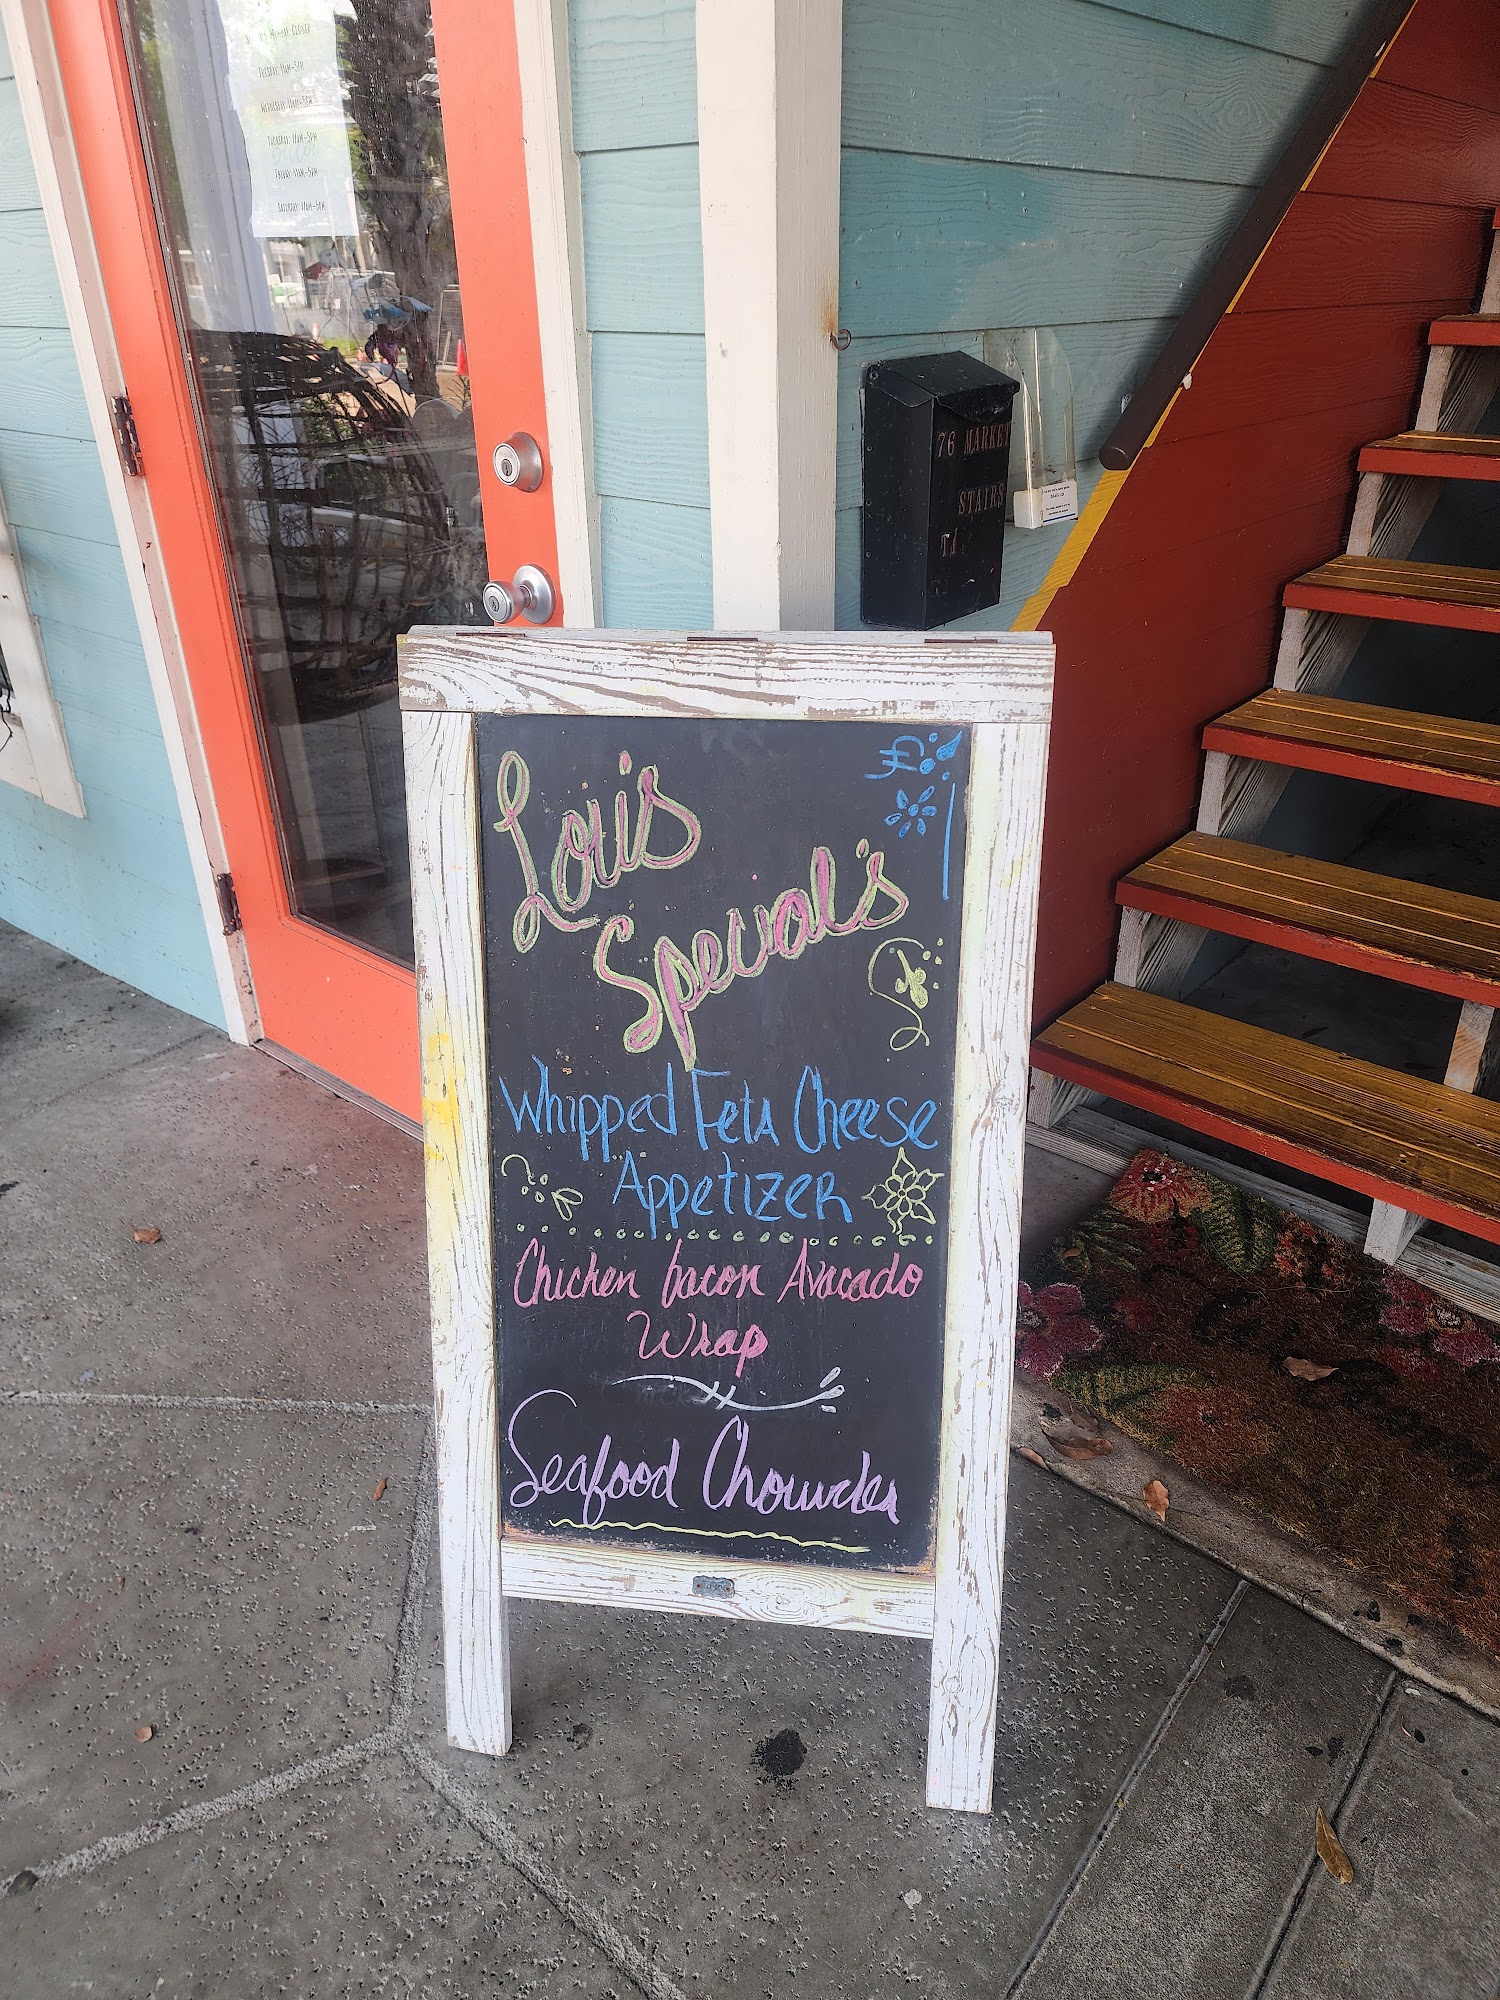 Monday Closed
Tuesday 11am-5pm
Wednesday 11am-5pm
11am-5pm
Friday 11am-5pm
Saturday 11am-5pm
76 MARKET
STAIRS
Lori's
Special's
Whipped Feta Cheese
Appetizer
Chicken bacon Avacado
Wrap
Seafood Chowder